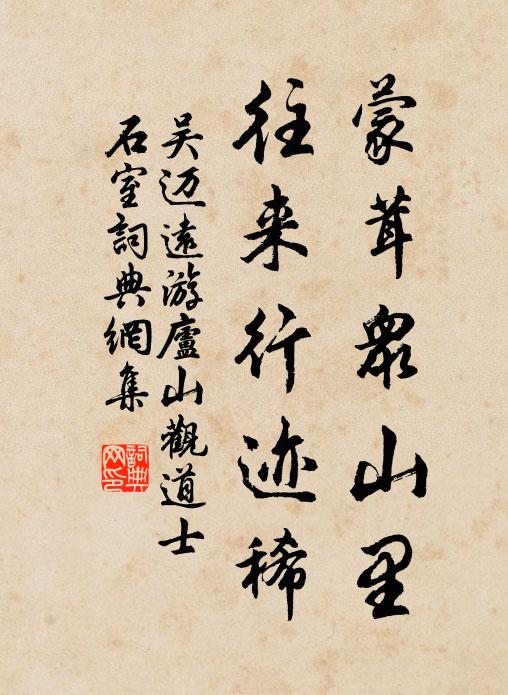 蒙茸衆山里
往来行迹稀
吴迈遠游廬山觀道士
石室詞典網集
詞典网印